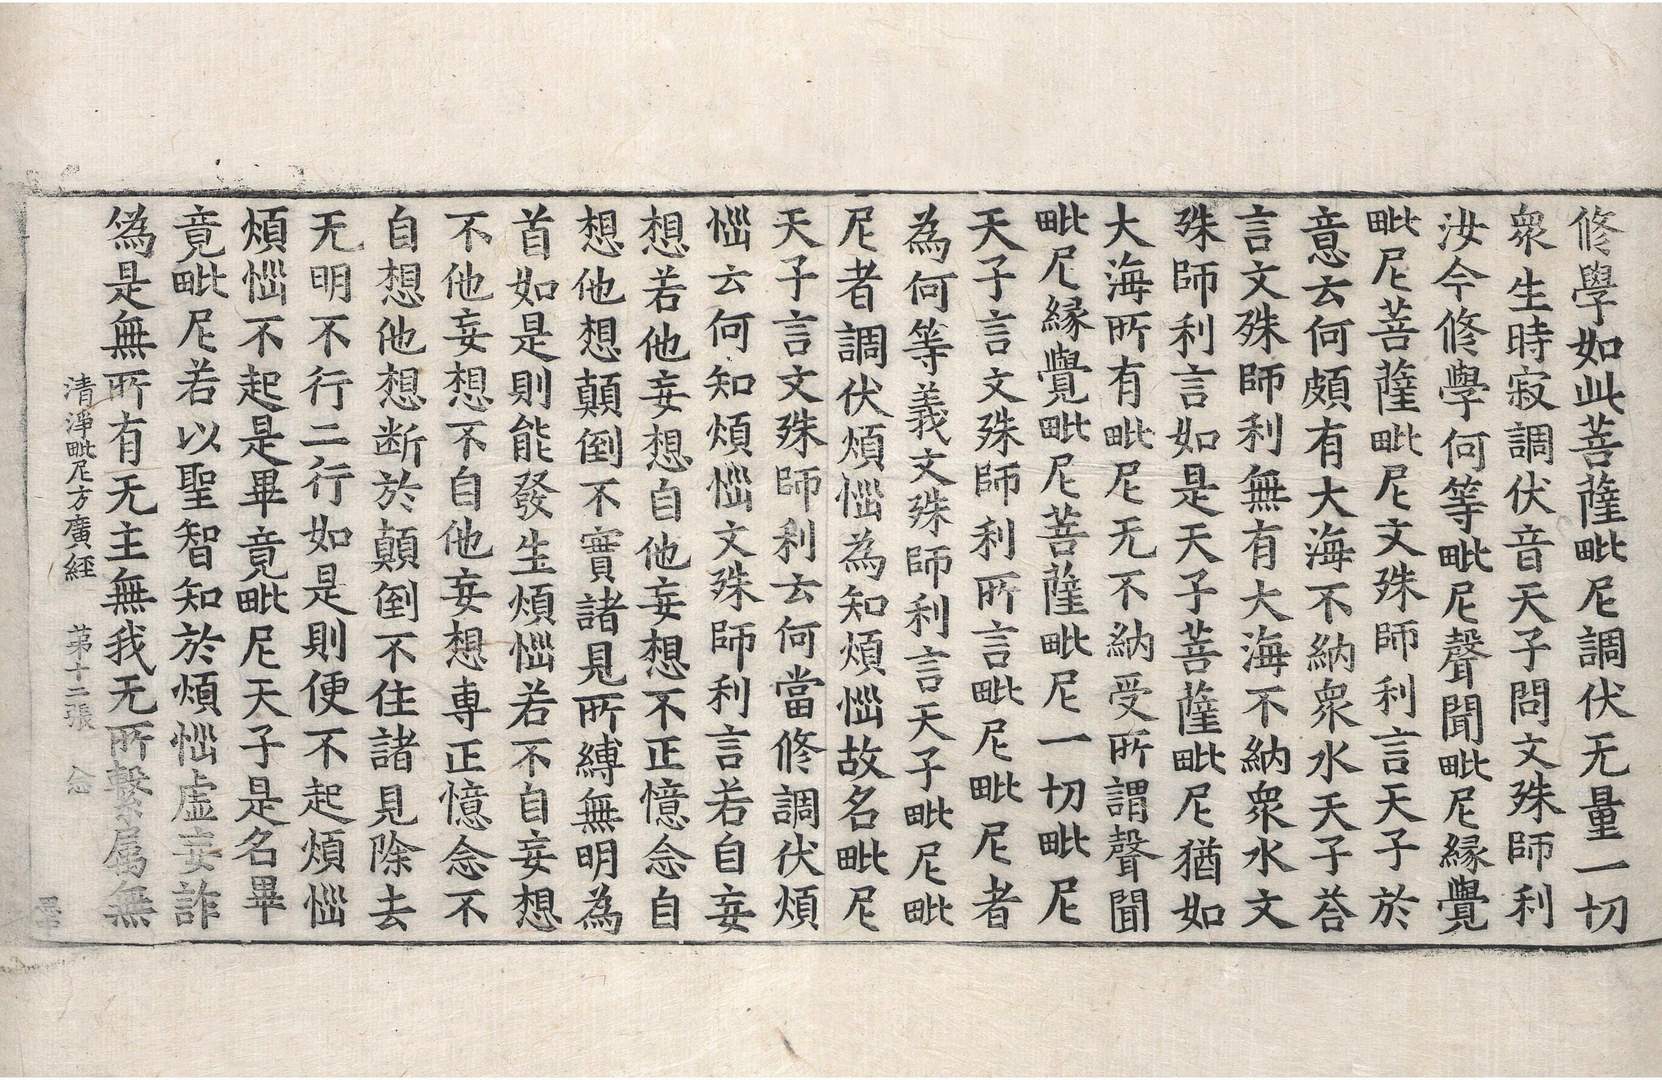 修學如此菩薩毗尼調伏无量一切
衆生時寂調伏音天子問文殊師利
汝今修學何等毗尼聲聞毗尼縁覺
毗尼菩薩毗尼文殊師利言天子於
意云何頗有大海不納衆水天子荅
言文殊師利無有大海不納衆水文
殊師利言如是天子菩薩毗尼猶如
大海所有毗尼无不納受所謂聲聞
毗尼縁覺毗尼菩薩毗尼一切毗尼
天子言文殊師利所言毗尼毗尼者
為何等義文殊師利言天子毗尼毗
尼者調伏煩惱為知煩惱故名毗尼
天子言文殊師利云何當修調伏煩
惱云何知煩惱文殊師利言若自妄
想若他妄想自他妄想不正憶念自
想他想顛倒不實諸見所縛無明為
首如是則能發生煩惱若不自妄想
不他妄想不自他妄想専正憶念不
自想他想断於顛倒不住諸見除去
无明不行二行如是則便不起煩惱
煩惱不起是畢竟毗尼天子是名畢
竟毗尼若以聖智知於煩惱虛妄詐
偽是無所有无主無我无所繫属無
清淨毗尼方廣経 苐十二張 念